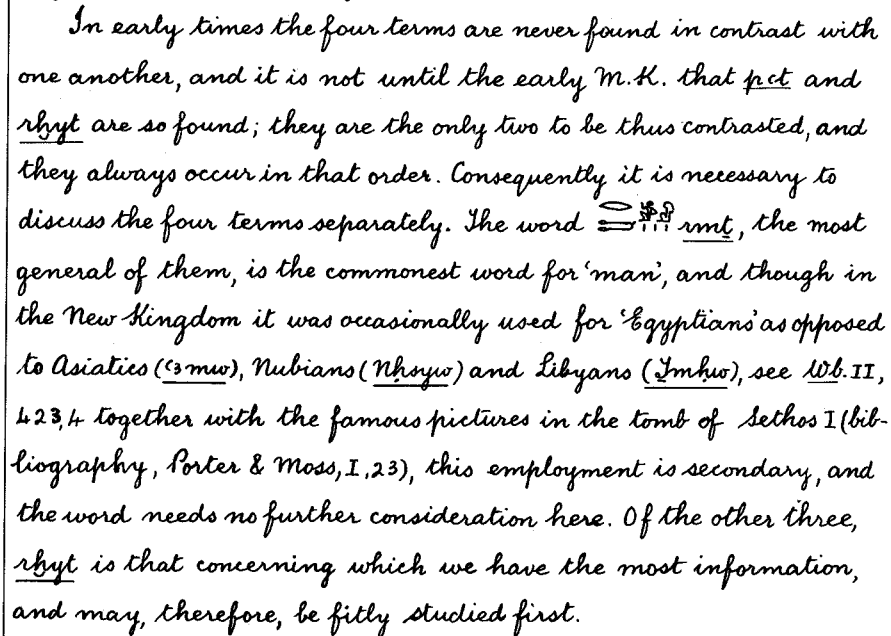 In early times the four terms are never found in contrast with
one another, and it is not until the early M.K. that pꜥt and
rḫyt are so found; they are the only two to be thus contrasted, and
they always occur in that order. Consequently it is necessary to
discuss the four terms separately. The word 𓂋𓍿𓀀𓁐𓏥 rmṯ, the most
general of them, is the commonest word for ‘man’, and though in
the New Kingdom it was occasionally used for ‘Egyptians’ as opposed
to Asiatics (ꜥꜣmw), Nubians (Nḥsyw) and Libyans (Tmḥw), see Wb. II,
423,4 together with the famous pictures in the tomb of Sethos I (bib-
liography, Porter & Moss, I, 23), this employment is secondary, and
the word needs no further consideration here. Of the other three,
rḫyt is that concerning which we have the most information,
and may, therefore, be fitly studied first.